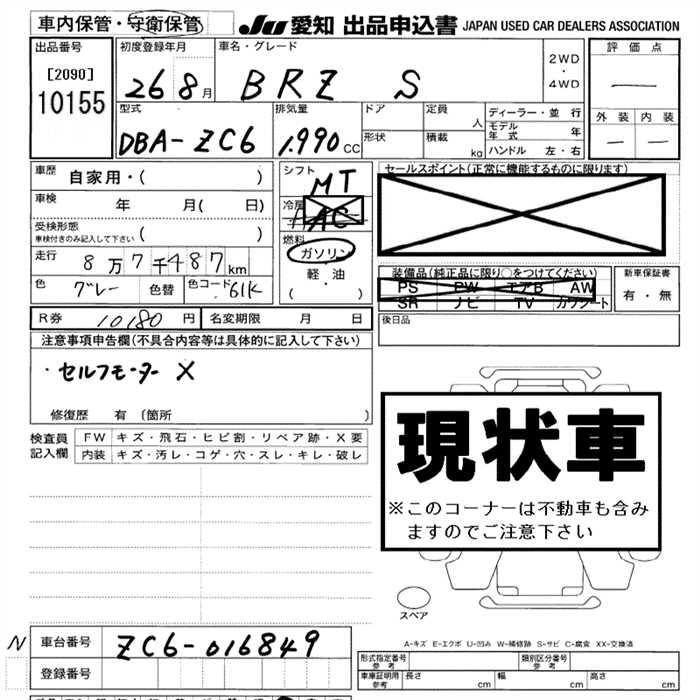 車内保管・守衛保管
JU 愛知 出品申込書 JAPAN USED CAR DEALERS ASSOCIATION
出品番号
[2090]
10155
初度登録年月
26 8月
車名・グレード
BRZ S
2WD
・
4WD
評価点
—
外装 内装
— —
型式
DBA-ZC6
排気量
1,990cc
ドア
形状
定員
人
積載
kg
ディーラー・並行
モデル年式 年
ハンドル 左・右
車歴 自家用・( )
車検 年 月( 日)
受検形態
車検付きのみ記入して下さい ( )
走行 8万7千487km
色 グレー 色替 色コード 61K
シフト
MT
冷房
AC
燃料
ガソリン
軽・油
( )
セールスポイント(正常に機能するものに限ります)
装備品(純正品に限り○をつけてください)
PS PW エアB AW
SR ナビ TV カワシート
新車保証書
有・無
R券 10180円 名変期限 月 日
後日品
注意事項申告欄(不具合内容等は具体的に記入して下さい)
・セルフモーター X
修復歴 有(箇所 )
検査員記入欄
FW キズ・飛石・ヒビ割・リペア跡・X要
内装 キズ・汚レ・コゲ・穴・スレ・キレ・破レ
現状車
※このコーナーは不動車も含み
ますのでご注意下さい
スペア
A-キズ E-エクボ U-凹み W-補修跡 S-サビ C-腐食 XX-交換済
N 車台番号 ZC6-016849
登録番号
形式指定番号
参考
類別区分番号
参考
車庫証明用
参考
長さ cm 幅 cm 高さ cm